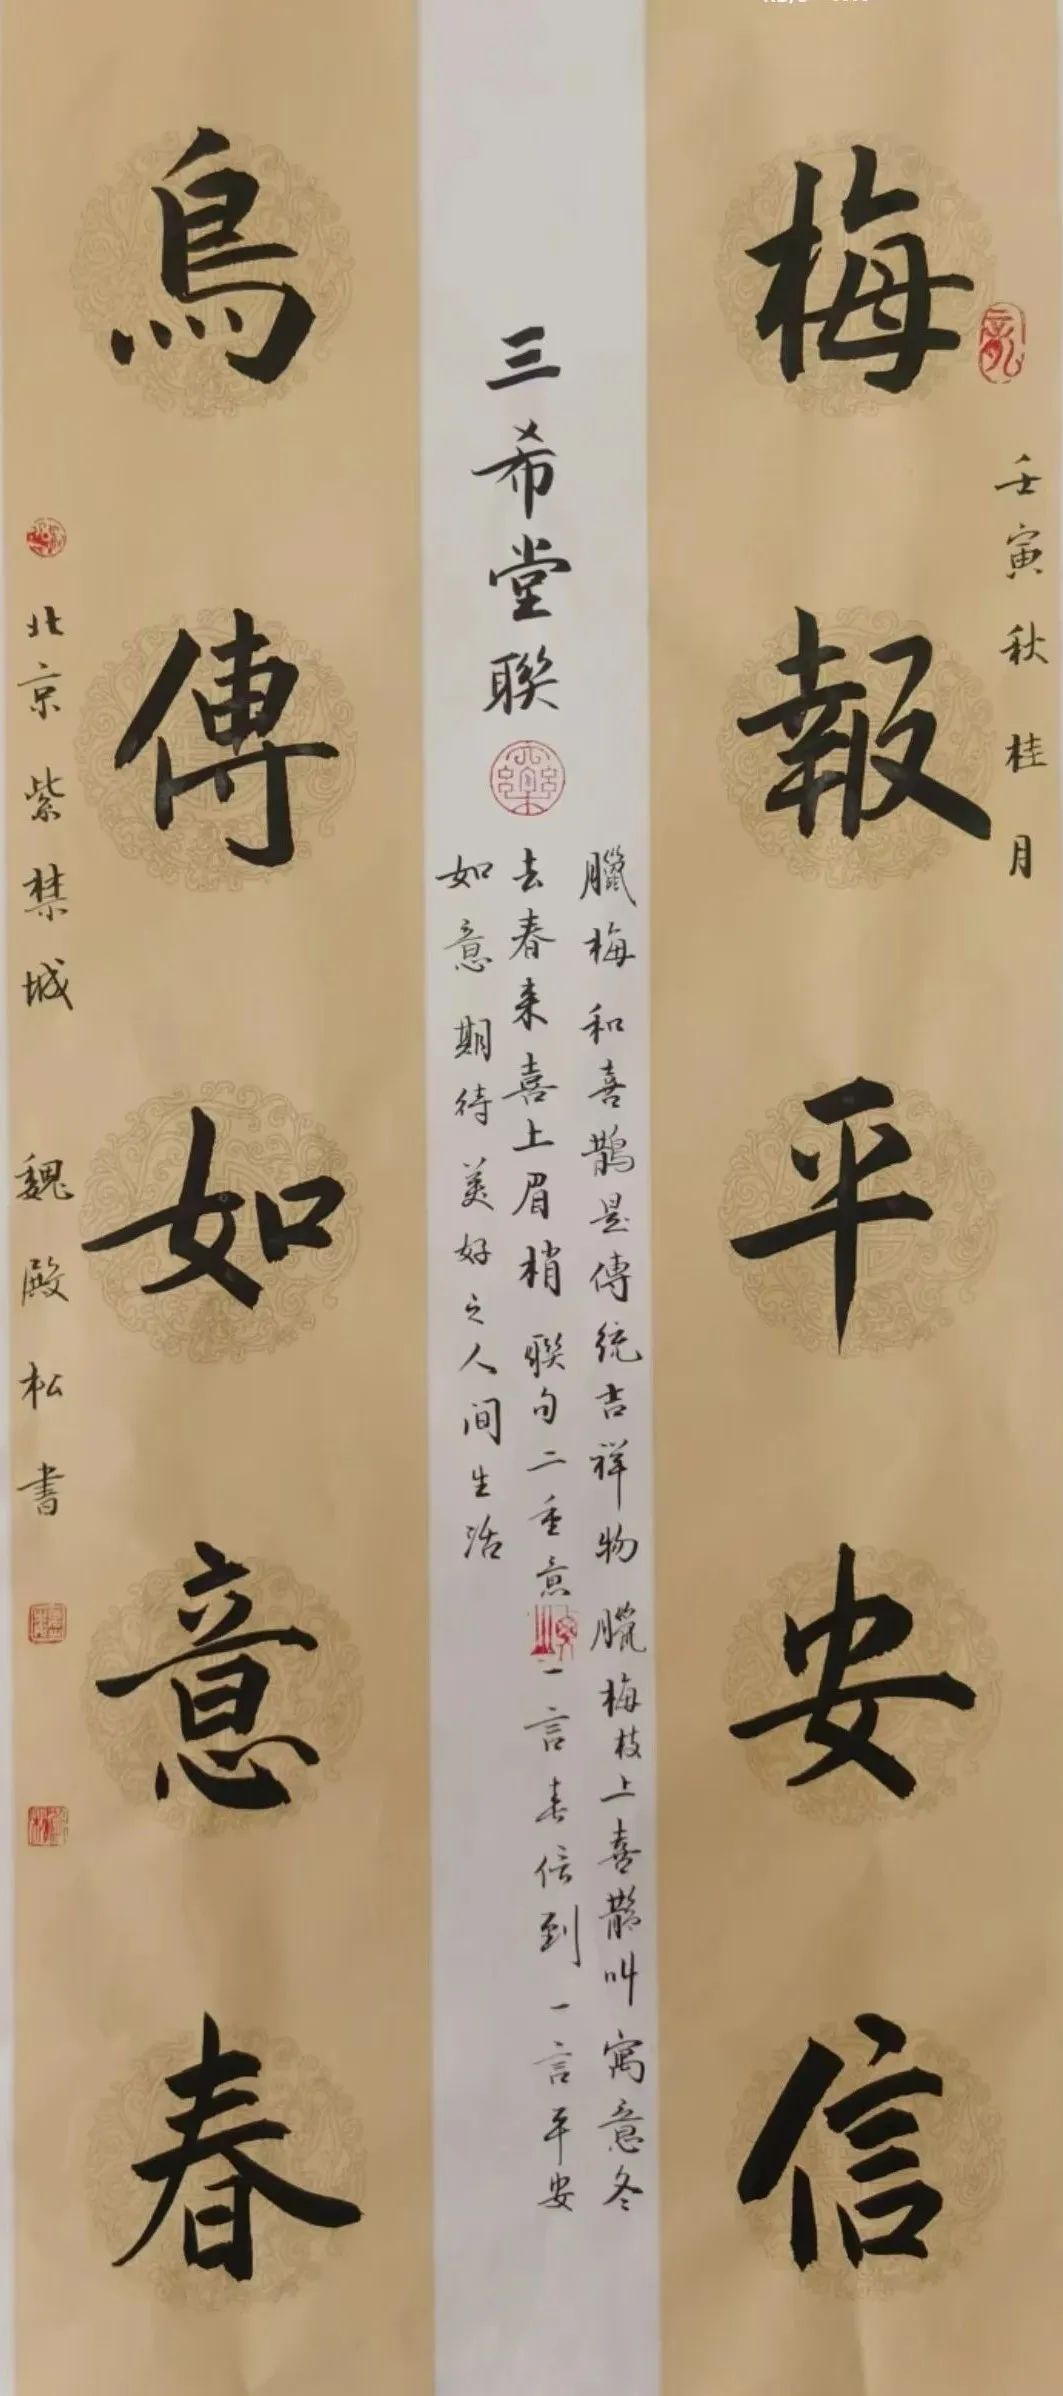 壬寅秋桂月
梅報平安信
三希堂聯
臘梅和喜鵲是傳統吉祥物 臘梅枝上喜鵲叫 寓意冬
去春来喜上眉梢 聯句二重意 一言春信到 一言平安
如意 期待美好之人间生活
鳥傳如意春
北京紫禁城 魏殿松書